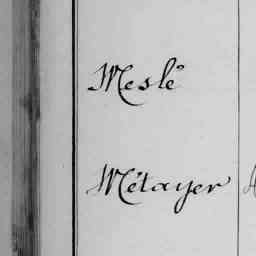 Meslé
Métayer